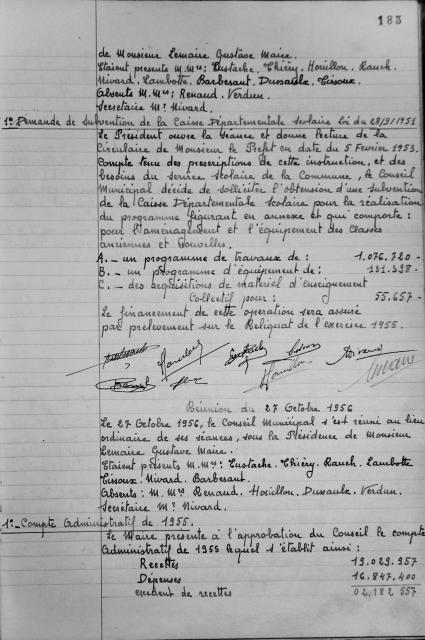 183
de Monsieur Lemaire Gustave Maire.
Etaient presents M.Mrs: Eustache, Thiéry, Houillon, Rauch,
Nivard, Lambotte, Barbesant, Dussaulx, Cisoux.
Absents M.Mrs: Renaud, Verdun.
Secretaire Mr Nivard.
1e Demande de subvention de la Caisse Départementale scolaire loi du 28/9/1951
Le Président ouvre la séance et donne lecture de la
Circulaire de Monsieur le Prefet en date du 5 Fevrier 1953.
Compte tenu des prescriptions de cette instruction, et des
besoins du service scolaire de la Commune, le Conseil
Municipal décide de solliciter l'obtension d'une subvention
de la Caisse Départementale scolaire pour la réalisation
du programme figurant en annexe et qui comporte:
pour l'aménagement et l'équipement des classes
anciennes et nouvelles.
A. - un programme de travaux de : 1.076.720 -
B. - un programme d'équipement de : 131.398 -
C. - des acquisitions de matériel d'enseignement
Collectif pour : 55.657 -
Le financement de cette opération sera assuré
par prelevement sur le Reliquat de l'exercice 1955.
Réunion du 27 Octobre 1956
Le 27 Octobre 1956, le Conseil Municipal s'est réuni au lieu
ordinaire de ses séances, sous la Présidence de Monsieur
Lemaire Gustave Maire.
Etaient présents M.Mrs: Eustache, Thiéry, Rauch, Lambotte
Cisoux, Nivard, Barbesant.
Absents: M.Mrs Renaud, Houillon, Dusaulx, Verdun.
Secrétaire Mr Nivard.
1e- Compte Administratif de 1955.
Le Maire présente à l'approbation du Conseil le compte
Administratif de 1955 lequel s'établit ainsi :
Recettes 19.029.957
Dépenses 16.847.400
excedent de recettes 02.182.557